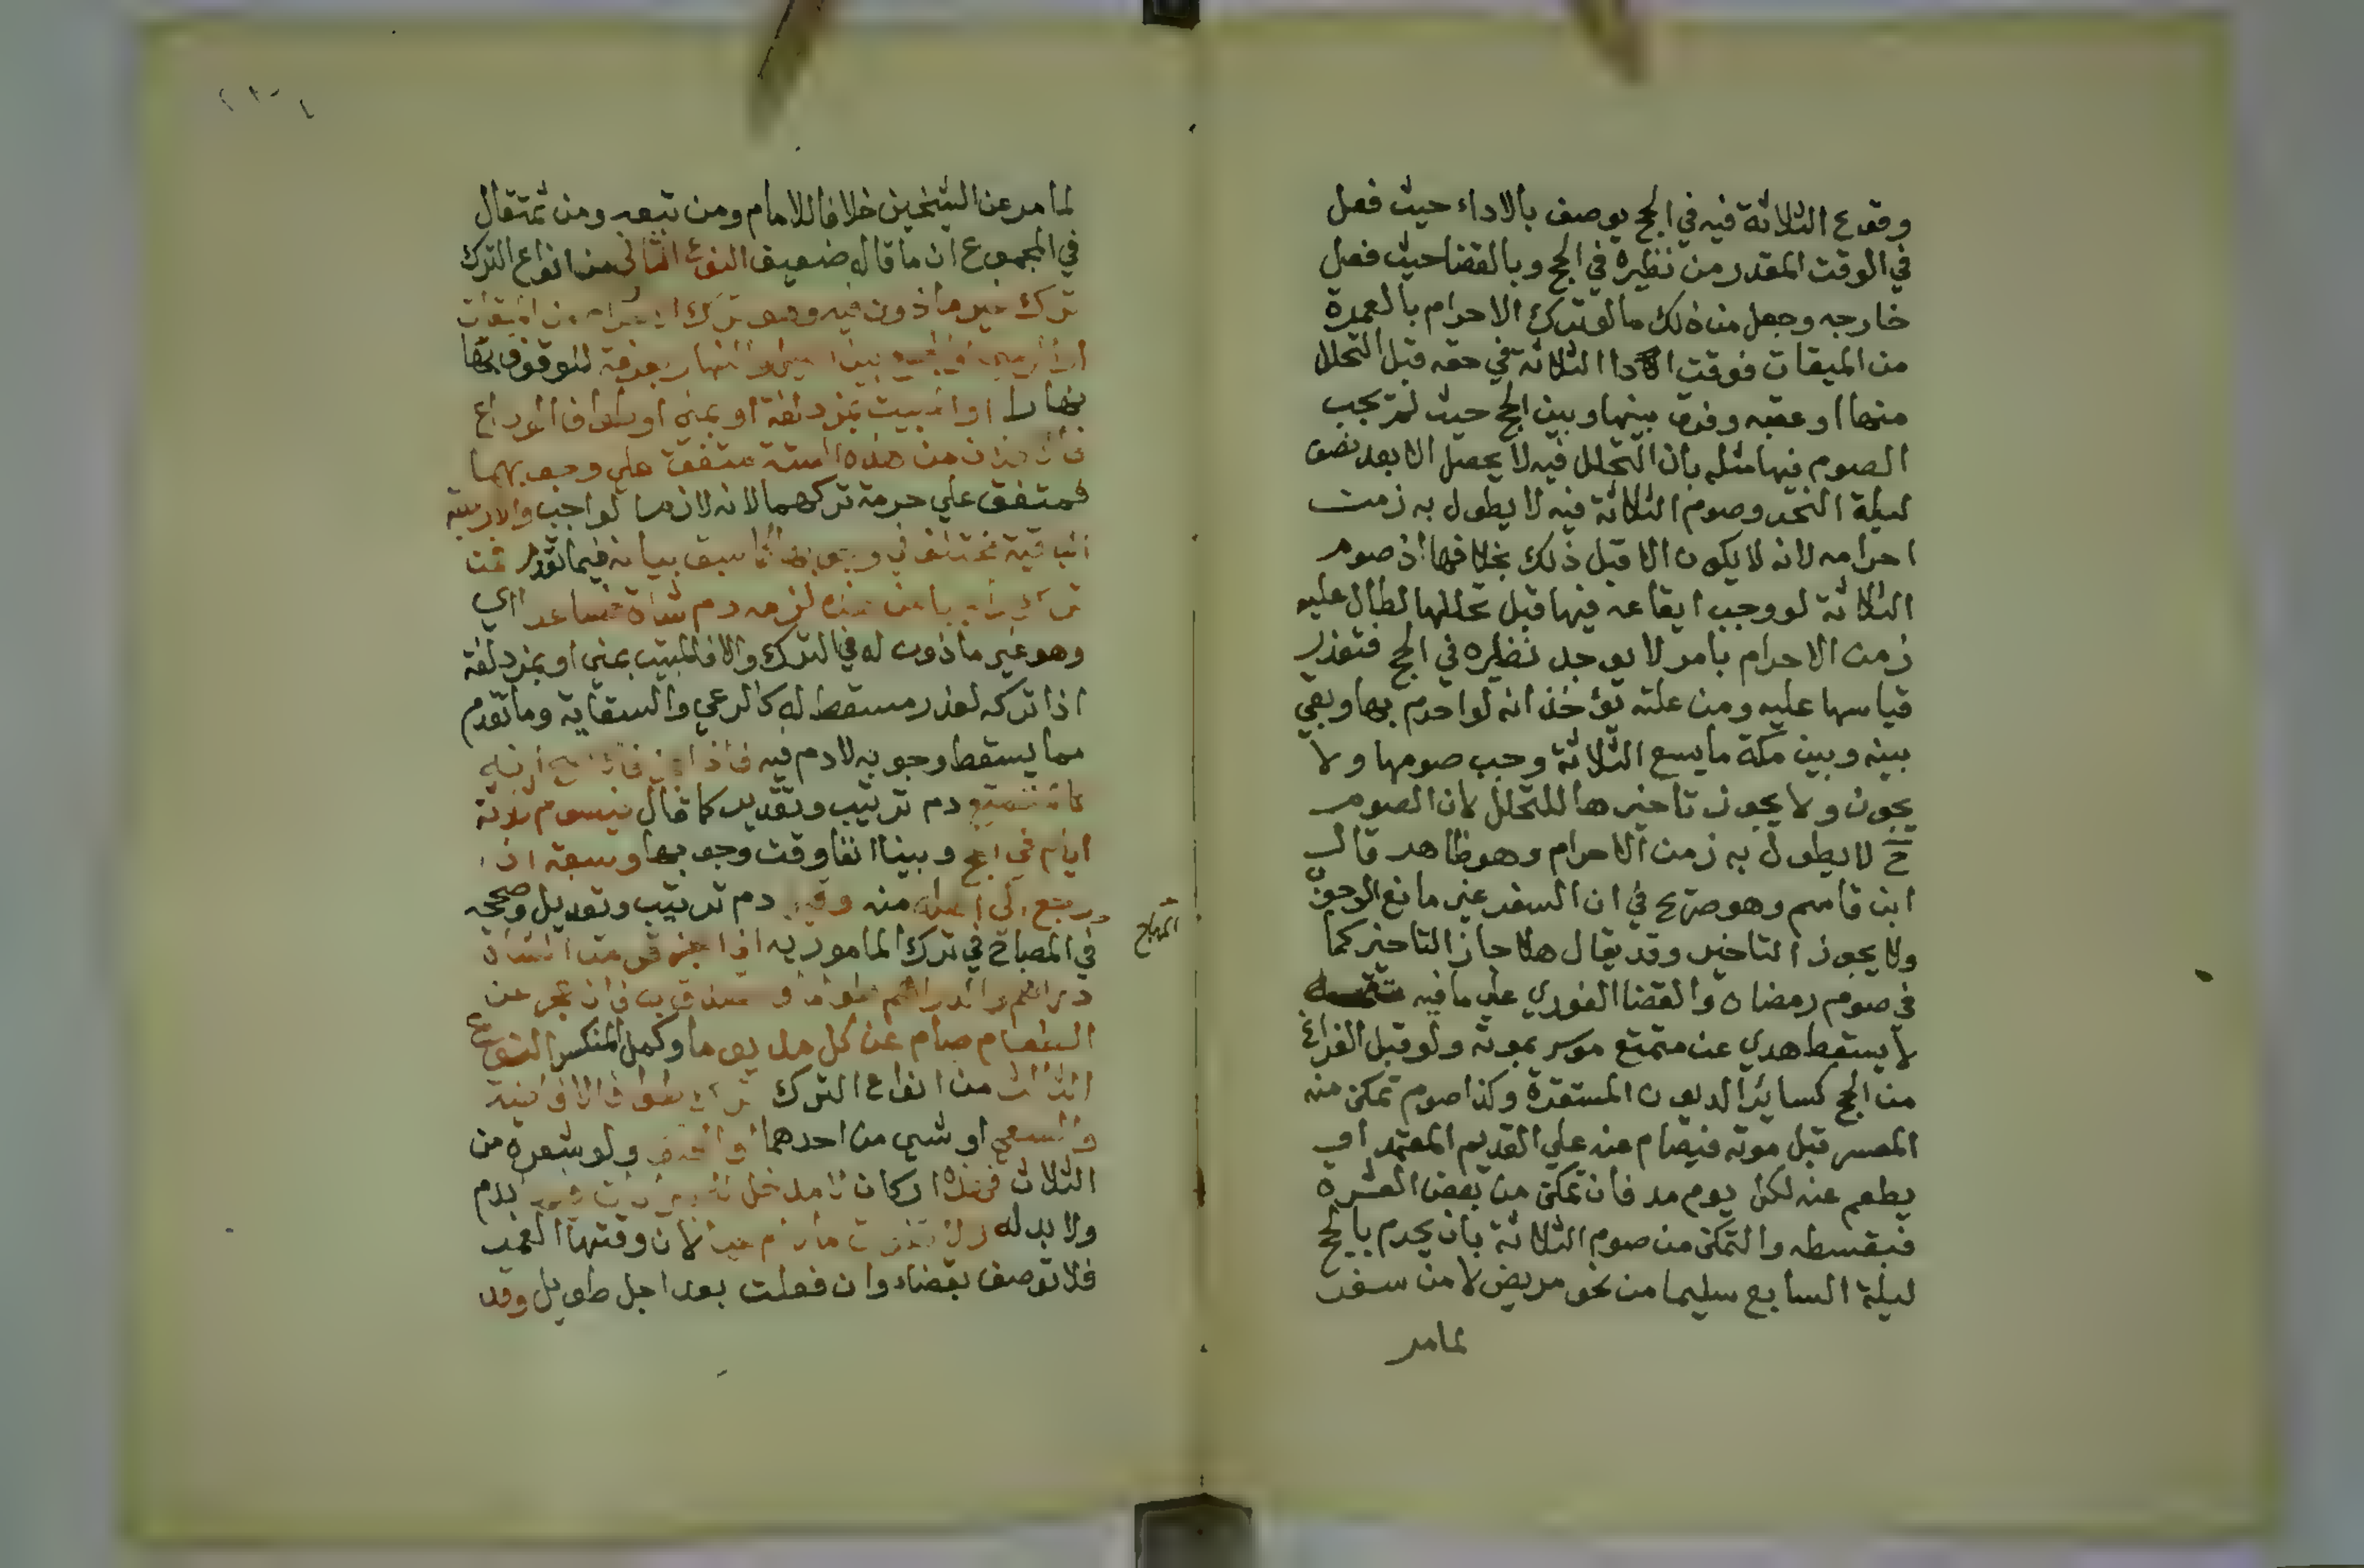 وقوع الثلاثة فيه في الحج يوصف بالاداء حيث فعل
في الوقت المقدر من نظيره في الحج وبالقضا حيث فعل
خارجه وجعل من ذلك ما لو ترك الاحرام بالعمرة
من الميقات فوقت الادا الثلاثة في حقه قبل التحلل
منها او عقبه وفرق بينها وبين الحج حيث لم يجب
الصوم فيها مثله بان التحلل فيه لا يحصل الا بعد نصف
ليلة النحر وصوم الثلاثة فيه لا يطول به زمن
احرامه لانه لا يكون الا قبل ذلك بخلافها اذ صوم
الثلاثة لو وجب ايقاعه فيها قبل تحللها لطال عليه
زمن الاحرام بامر لا يوجد نظيره في الحج فتعذر
قياسها عليه ومن علته يؤخذ انه لو احرم بها وبقي
بينه وبين مكة ما يسع الثلاثة وجب صومها ولا
يجوز ولا يجوز تاخيرها للتحلل لان الصوم
ح لا يطول به زمن الاحرام وهو ظاهر قال
ابن قاسم وهو صريح في ان السفر غير مانع الوجوب
ولا يجوز التاخير وقد يقال هلا جاز التاخير كما
في صوم رمضان والقضا الفوري علي ما فيه
لا يسقط هدي عن متمتع موسر بموته ولو قبل الفراغ
من الحج كسائر الديون المستقرة وكذا صوم تمكن منه
المعسر قبل موته فيصام عنه علي القديم المعتمد او
يطعم عنه لكل يوم مد فان تمكن من بعض العشرة
فبقسطه والتمكن من صوم الثلاثة بان يحرم بالحج
ليلة السابع سليما من نحو مريض لا من سفر
لما مر
لما مر عن الشيخين خلافا للامام ومن تبعه ومن ثم قال
في المجموع ان ما قاله ضعيف النوع الثاني من انواع الترك
ترك غير ماذون فيه وهو ترك الاحرام من الميقات
بين الليل والنهار بعرفة للوقوف بها
نهارا او المبيت بمزدلفة او بمني او طواف الوداع
من هذه الستة متفق علي وجوبهما
فمتفق علي حرمة تركهما لانه لازم الواجب والاربعة
الباقية مختلف في وجوبها كما سبق بيانه فيما تقدم فمن
ترك من هذه لزمه دم شاة فصاعدا اي
وهو غير ماذون له في الترك والا فالمبيت بمني او بمزدلفة
اذا تركه لعذر مسقط له كالرعي والسقاية وما تقدم
مما يسقط وجوبه لا دم فيه
كالمتمتع دم ترتيب وتقدير كما قال فيصوم ثلاثة
ايام في الحج وبينا انفا وقت وجوبها وسبعة اذا
رجع الي اهله منه وقيل دم ترتيب وتعديل وصححه
المنهاج
في المصباح في ترك المامور به اذا عجز قومت الشاة
دراهم والدراهم طعاما و تصدق به فان عجز عن
الطعام صام عن كل مد يوما وكمل المنكسر النوع
الثالث من انواع الترك ترك طواف الافاضة
والسعي او شي من احدهما او الحلق ولو شعرة من
الثلاث فهذه اركان لا مدخل بدم
ولا بدله لان وقتها العمر
فلا توصف بقضاء وان فعلت بعد اجل طويل وقد